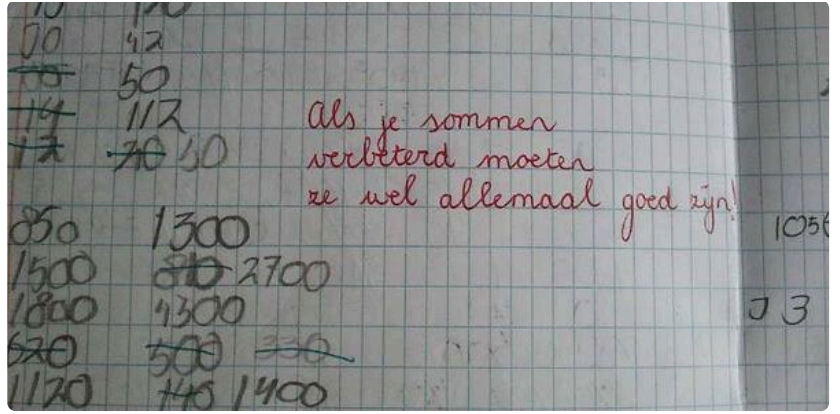 00 42
50
114 112
17 30
Als je sommen
verbeterd moeten
ze wel allemaal goed zijn!
850 1300
1500 810 2700
1800 4300
620 500 330
1120 140 1400
3